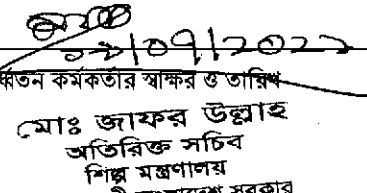 ০২/০৭/২০২২
কর্মকর্তার স্বাক্ষর ও তারিখ
মোঃ জাফর উল্লাহ
অতিরিক্ত সচিব
শিল্প মন্ত্রণালয়
সরকার